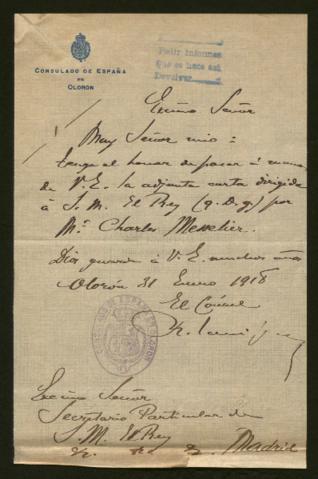 CONSULADO DE ESPAÑA
EN
OLORON
Pedir informes
que se hace así
Devolver
Excmo Señor
Muy Señor mio:
Tengo el honor de pasar á manos
de V.E. la adjunta carta dirigida
á S. M. El Rey (q. D. g.) por
Mr. Charles
Dios guarde á V. E. muchos años
Oloron 31 Enero 1918
El Cónsul
CONSULADO DE ESPAÑA EN OLORON
Excmo Señor
Secretario Particular de
S. M. El Rey
Madrid